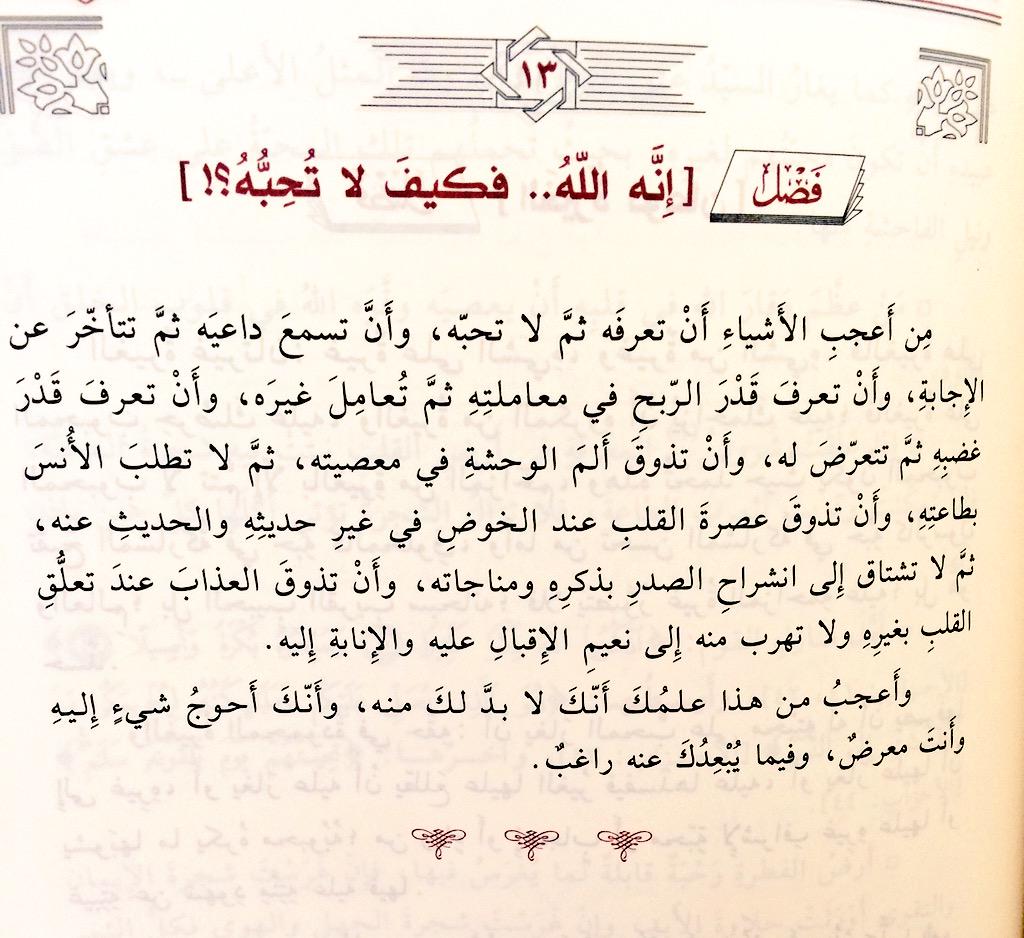 ١٣
فَصْل [إِنَّه اللّهُ.. فكيفَ لا تُحِبُّهُ؟!]
مِن أَعجبِ الأَشياءِ أَنْ تعرفَه ثمَّ لا تحبّه، وأَنَّ تسمعَ داعيَه ثمَّ تتأخّرَ عن
الإِجابةِ، وأَنْ تعرفَ قَدْرَ الرّبحِ في معاملتِهِ ثمَّ تُعامِلَ غيرَه، وأَنْ تعرفَ قَدْرَ
غضبِهِ ثمَّ تتعرّضَ له، وأَنْ تذوقَ أَلمَ الوحشةِ في معصيته، ثمَّ لا تطلبَ الأُنسَ
بطاعتِهِ، وأَنْ تذوقَ عصرةَ القلبِ عند الخوضِ في غيرِ حديثِهِ والحديثِ عنه،
ثمَّ لا تشتاق إِلى انشراحِ الصدرِ بذكرِهِ ومناجاته، وأَنْ تذوقَ العذابَ عندَ تعلُّقِ
القلبِ بغيرِهِ ولا تهرب منه إِلى نعيمِ الإِقبالِ عليه والإِنابةِ إِليه.
وأَعجبُ من هذا علمُكَ أَنّكَ لا بدَّ لكَ منه، وأَنّكَ أَحوجُ شيءٍ إِليهِ
وأَنتَ معرضٌ، وفيما يُبْعِدُكَ عنه راغبٌ.